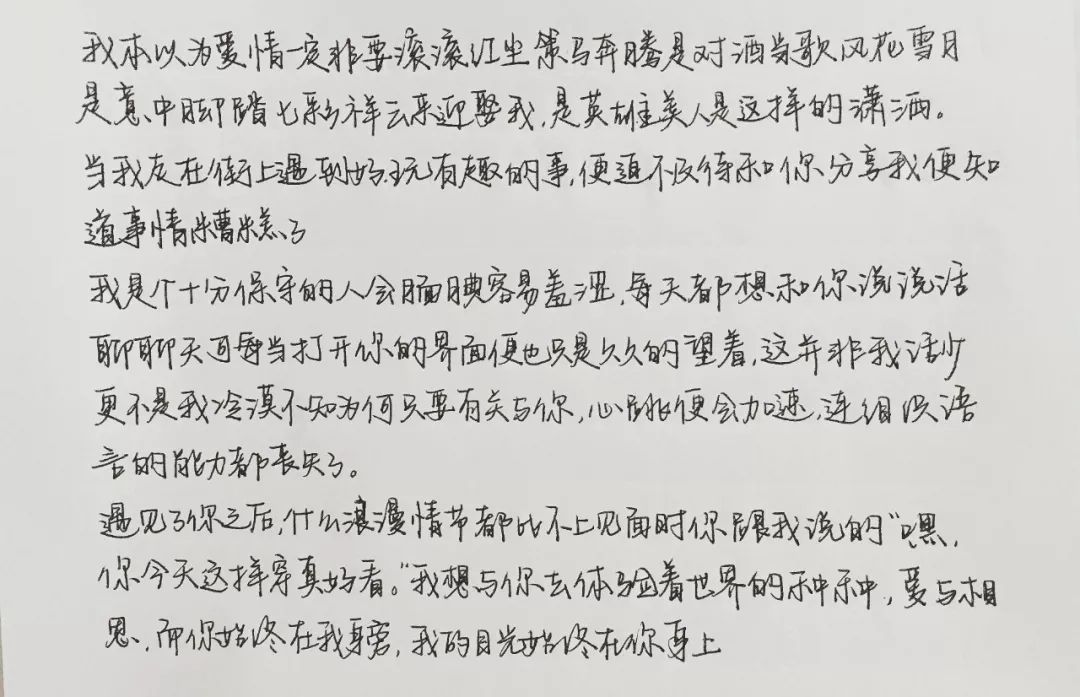 我本以为爱情一定非要滚滚红尘策马奔腾是对酒当歌风花雪月
是意中脚踏七彩祥云来迎娶我,是英雄美人是这样的潇洒。
当我走在街上遇到好玩有趣的事,便迫不及待和你分享我便知
道事情糟糕了
我是个十分保守的人会腼腆容易羞涩,每天都想和你说说话
聊聊天可每当打开你的界面便也只是久久的望着,这并非我话少
更不是我冷漠不知为何只要有关与你,心跳便会加速,连组织语
言的能力都丧失了。
遇见了你之后,什么浪漫情节都比不上见面时你跟我说的“嘿,
你今天这样穿真好看。”我想与你去体验着世界的种种,爱与相
思,而你始终在我身旁,我的目光始终在你身上